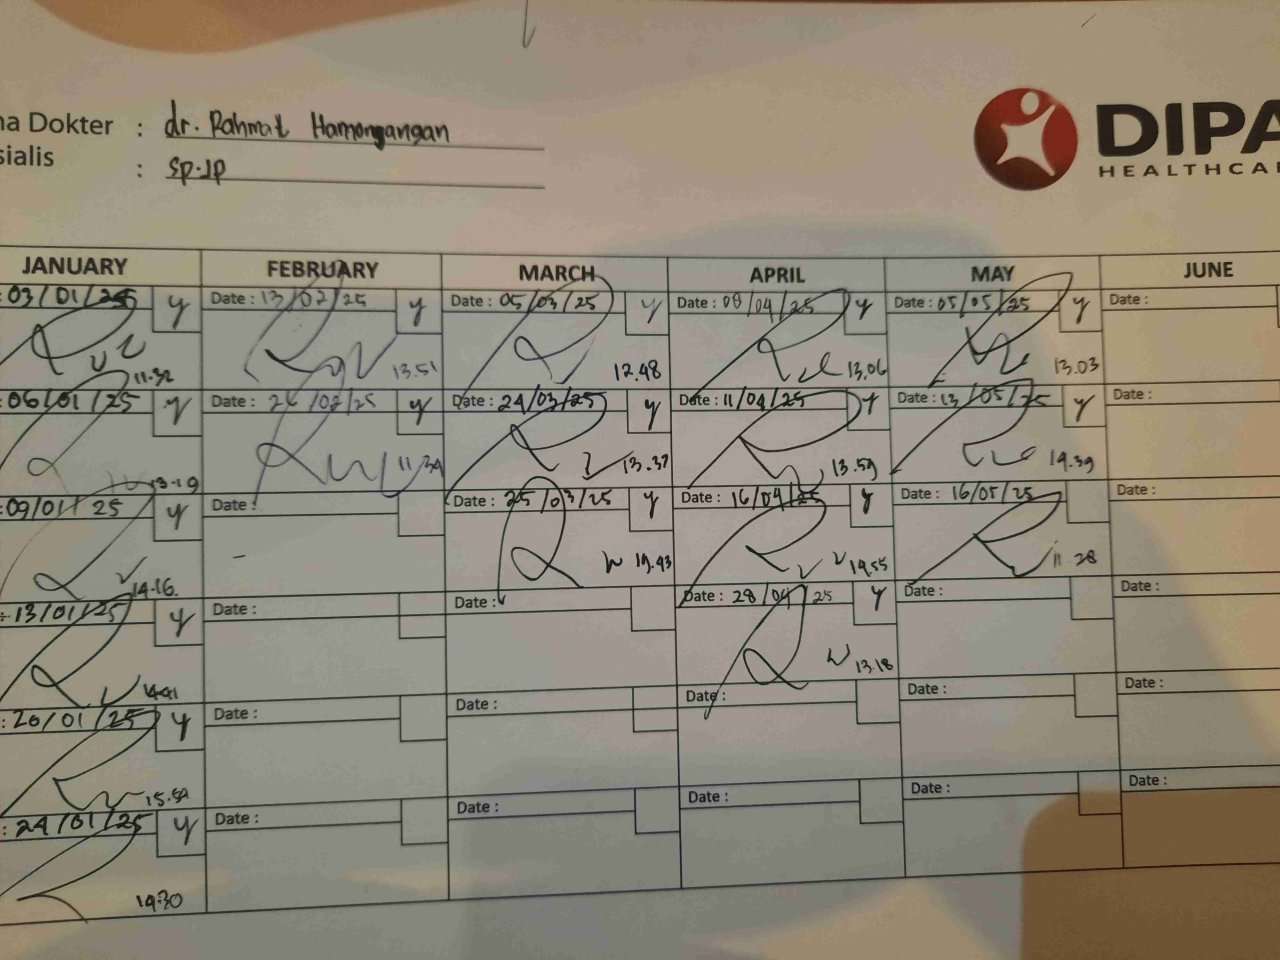 na Dokter : dr. Rahmat Hamongangan
sialis : Sp.JP
DIPA
HEALTHCA
JANUARY FEBRUARY MARCH APRIL MAY JUNE
: 03/01/25 y Date : 13/02/25 y Date : 05/03/25 y Date : 08/04/25 y Date : 05/05/25 y Date :
11.32 13.51 12.48 13.06 13.03
: 06/01/25 y Date : 26/02/25 y Date : 24/03/25 y Date : 11/04/25 y Date : 13/05/25 y Date :
13.19 11.39 13.37 13.59 14.39
: 09/01/25 y Date : Date : 25/03/25 y Date : 16/04/25 y Date : 16/05/25 Date :
14.16. 19.43 14.55 11.28
: 13/01/25 y Date : Date : Date : 28/04/25 y Date : Date :
14.41 13.18
: 20/01/25 y Date : Date : Date : Date : Date :
15.59
: 24/01/25 y Date : Date : Date : Date : Date :
14.30